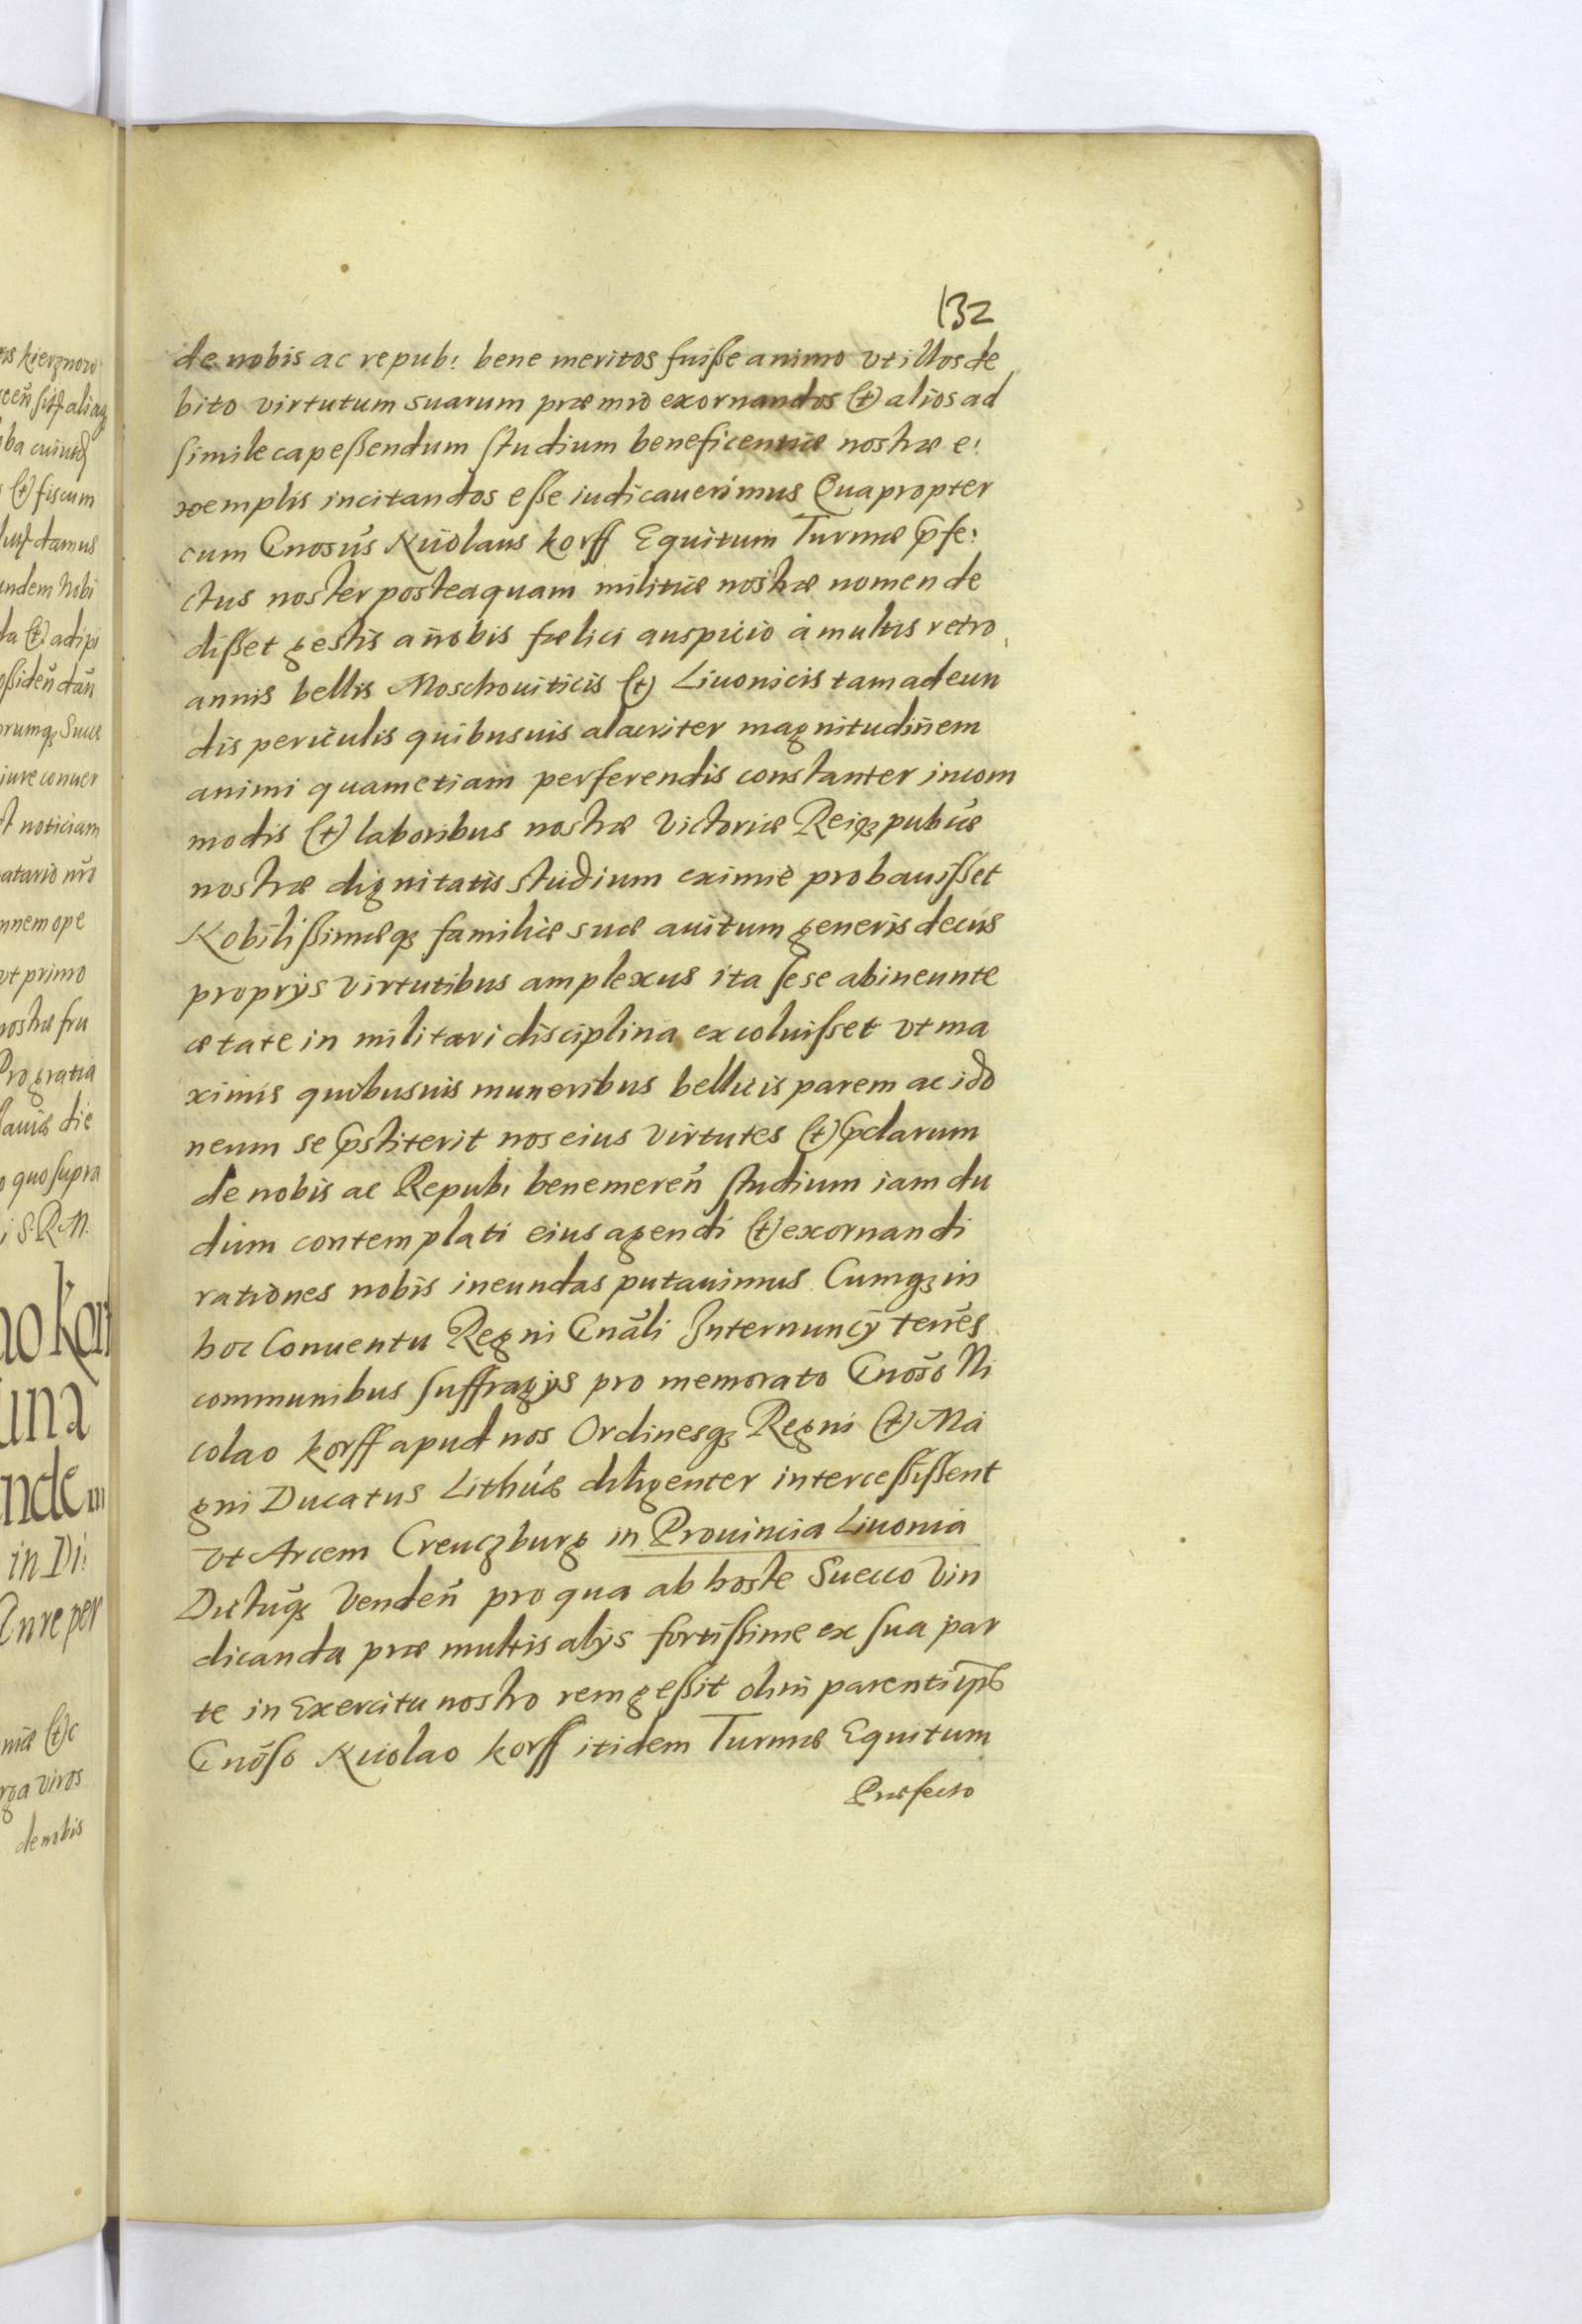 132
de nobis ac repub: bene meritos fuiße animo vt illos de
bito virtutum suarum præmio exornandos (et) alios ad
simile capeßendum studium beneficentiæ nostræ e:
xemplis incitandos eße iudicauerimus Quapropter
cum Gnosūs Nicolaus Korff Equitum Turmæ p̃fe:
ctus noster posteaquam militiæ nostræ nomen de
dißet gestis a nobis fælici auspicio à multis retro
annis bellis Moschouiticis (et) Liuonicis tam adeun
dis periculis quibusuis alacriter magnitudinem
animi quam etiam perferendis constanter incom
modis (et) laboribus nostræ Victoriæ Reiq3 pub͠cæ
nostræ dignitatis studium eximiè probauisset
Nobilißimæq3 familiæ suæ auitum generis decus
proprÿs virtutibus amplexus ita sese ab ineunte
ætate in militari disciplina excoluisset vt ma
ximis quibusuis muneribus bellicis parem ac ido
neum se p̃stiterit nos eius virtutes (et) p̃clarum
de nobis ac Repub: benemereñ studium iam du
dum contemplati eius agendi (et) exornandi
rationes nobis ineundas putauimus Cumq3 in
hoc Conuentu Regni Gnāli Internuncÿ terr̃es
communibus suffragÿs pro memorato Gnōso Ni
colao Korff apud nos Ordinesq3 Regni (et) Ma
gni Ducatus Lithuæ diligenter intercessissent
vt Arcem Creuczburg in Prouincia Liuonia
Dictuq̃3 Vendeñ pro qua ab hoste Suecco Vin
dicanda præ multis alÿs fortissime ex sua par
te in Exercitu nostro rem geßit olim parenti ip̃s
Gnōso Nicolao Korff itidem Turmæ Equitum
Præfecto
ao Korf
una
ndem
in Di:
erga viros
de nobis
quo supra
i S. R. M.
Pro gratia
vt primo
noticiam
(et) fiscum